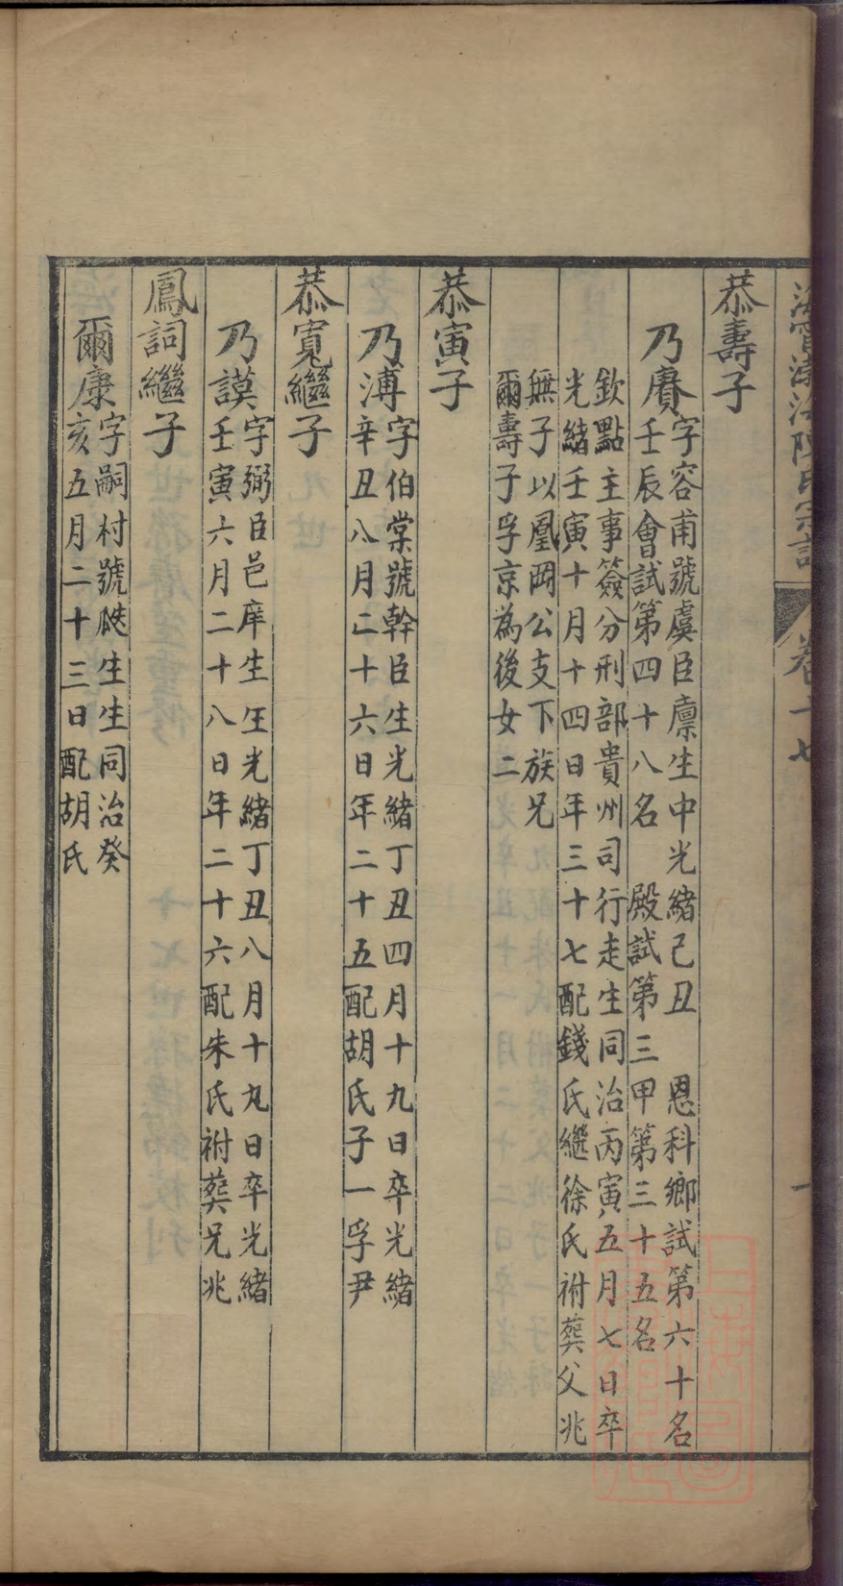 海寧渤海陳氏宗譜 卷二十七 一
恭壽子
乃賡
字容甫號虞臣廪生中光緒己丑 恩科鄉試第六十名
壬辰會試第四十八名 殿試第三甲第三十五名
欽點主事簽分刑部貴州司行走生同治丙寅五月七日卒
光緒壬寅十月十四日年三十七配錢氏繼徐氏祔葬父兆
無子以鳳岡公支下族兄
爾壽子孚京為後女二
恭寅子
乃溥
字伯棠號幹臣生光緒丁丑四月十九日卒光緒
辛丑八月二十六日年二十五配胡氏子一孚尹
恭寬繼子
乃謨
字弼臣邑庠生生光緒丁丑八月十九日卒光緒
壬寅六月二十八日年二十六配朱氏祔葬兄兆
鳳詞繼子
爾康
字嗣村號 生生同治癸
亥五月二十三日配胡氏